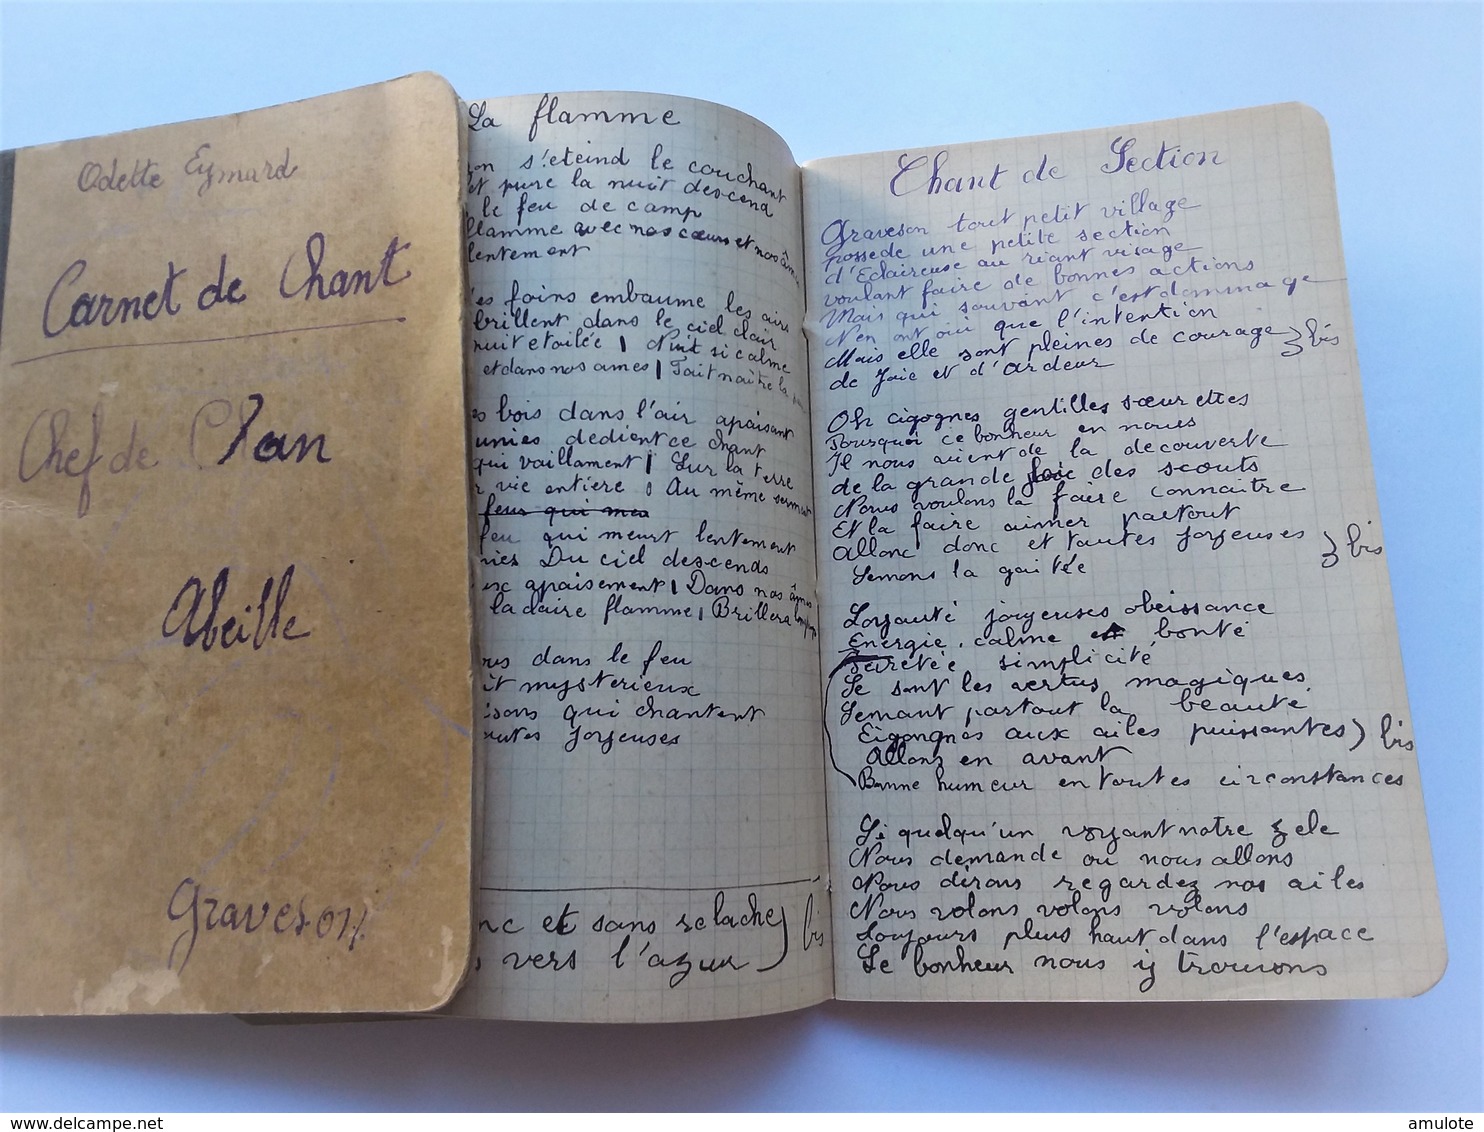 Odette Eymard
Carnet de Chant
Chef de Clan
Abeille
Graveson
La flamme
s'eteind le couchant
et pure la nuit descend
le feu de camp
flamme avec nos cœurs et nos
lentement
foins embaume les airs
brillent dans le ciel clair
nuit etoilée | Nuit si calme
et dans nos ames | Fait naître la
bois dans l'air apaisant
unies dedient ce chant
qui vaillament | Sur la terre
vie entière | Au même serment
feu qui meurt lentement
Du ciel descends
apaisement | Dans nos âmes
la claire flamme | Brillera
dans le feu
mysterieux
qui chantent
joyeuses
et sans relache ) bis
vers l'azur
Chant de Section
Graveson tout petit village
possede une petite section
d'Eclaireuse au riant visage
voulant faire de bonnes actions
Mais qui souvant c'est dommage
N'en ont oui que l'intention
Mais elle sont pleines de courage } bis
de Joie et d'ardeur
Oh cigognes gentilles sœurettes
Pourquoi ce bonheur en nous
Il nous vient de la decouverte
de la grande des scouts
Nous voulons la faire connaitre
Et la faire aimer partout
Allonc donc et toutes joyeuses } bis
Semons la gaitée
Loyauté joyeuses obeissance
Energie, calme et bonté
simplicité
Se sont les vertus magiques
Semant partout la beauté
Cigognes aux ailes puissantes ) bis
Allons en avant
Bonne humeur en toutes circonstances
Si quelqu'un voyant notre zele
Nous demande ou nous allons
Nous dirons regardez nos ailes
Nous volons volons volons
Toujours plus haut dans l'espace
Le bonheur nous y trouvons
delcampe.net
amulote